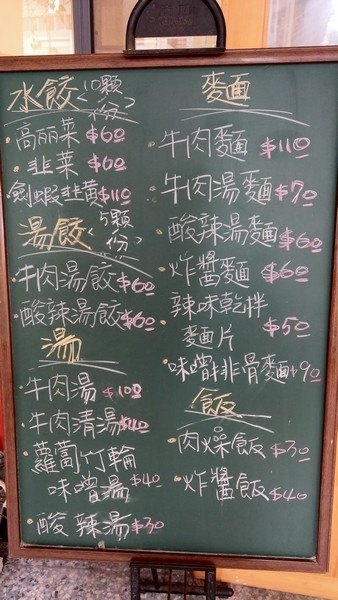 水餃(10顆份)
高丽菜 $60
韭菜 $60
劍蝦韭黃 $110
湯餃(5顆份)
牛肉湯餃 $60
酸辣湯餃 $60
湯
牛肉湯 $100
牛肉清湯 $40
蘿蔔竹輪
味噌湯 $40
酸辣湯 $30
麵
牛肉麵 $110
牛肉湯麵 $70
酸辣湯麵 $60
炸醬麵 $60
辣味乾拌
麵片 $50
味噌排骨麵 $90
飯
肉燥飯 $30
炸醬飯 $40